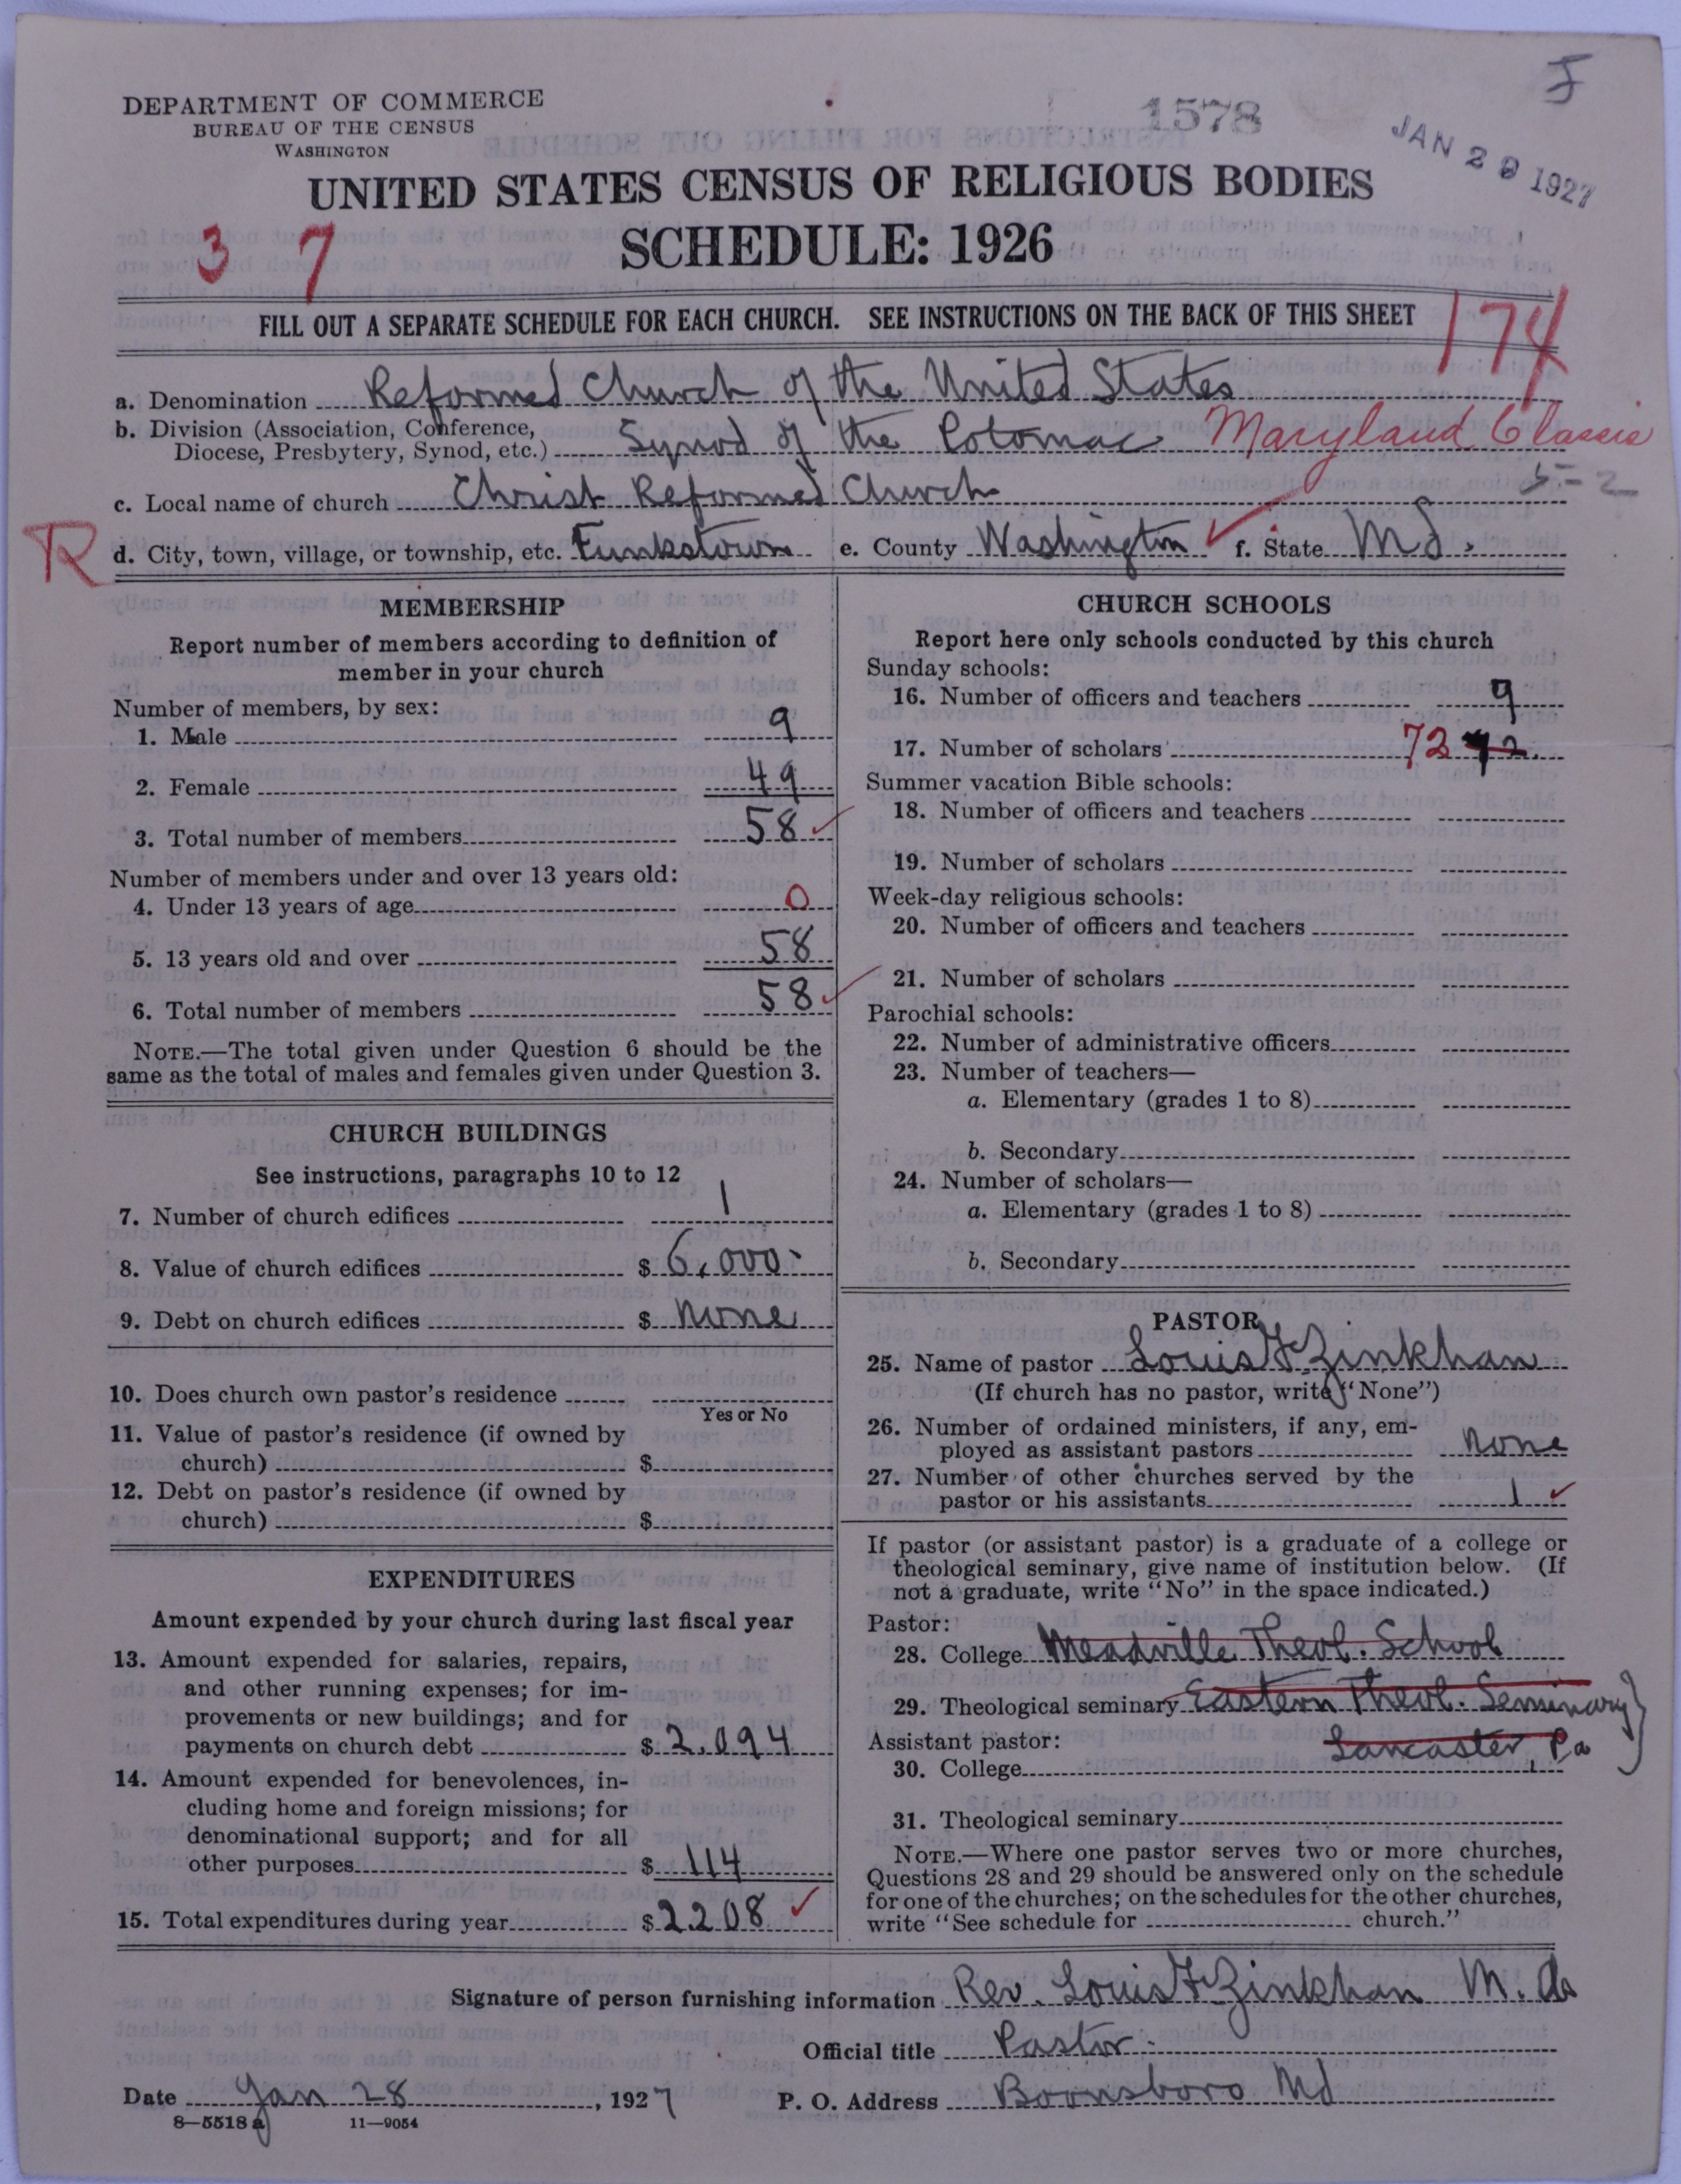 DEPARTMENT OF COMMERCE
BUREAU OF THE CENSUS
WASHINGTON
1578
JAN 29 1927
UNITED STATES CENSUS OF RELIGIOUS BODIES
3 7
SCHEDULE: 1926
FILL OUT A SEPARATE SCHEDULE FOR EACH CHURCH. SEE INSTRUCTIONS ON THE BACK OF THIS SHEET
174
a. Denomination Reformed Church of the United States
b. Division (Association, Conference, Diocese, Presbytery, Synod, etc.) Synod of the Potomac Maryland Classis
c. Local name of church Christ Reformed Church
R
d. City, town, village, or township, etc. Funkstown e. County Washington f. State Md.
MEMBERSHIP
Report number of members according to definition of
member in your church
Number of members, by sex:
1. Male 9
2. Female 49
3. Total number of members 58
Number of members under and over 13 years old:
4. Under 13 years of age 0
5. 13 years old and over 58
6. Total number of members 58
NOTE.—The total given under Question 6 should be the
same as the total of males and females given under Question 3.
CHURCH BUILDINGS
See instructions, paragraphs 10 to 12
7. Number of church edifices 1
8. Value of church edifices $ 6,000
9. Debt on church edifices $ None
10. Does church own pastor's residence
Yes or No
11. Value of pastor's residence (if owned by
church) $
12. Debt on pastor's residence (if owned by
church) $
EXPENDITURES
Amount expended by your church during last fiscal year
13. Amount expended for salaries, repairs,
and other running expenses; for im-
provements or new buildings; and for
payments on church debt $ 2,094
14. Amount expended for benevolences, in-
cluding home and foreign missions; for
denominational support; and for all
other purposes $ 114
15. Total expenditures during year $ 2208
CHURCH SCHOOLS
Report here only schools conducted by this church
Sunday schools:
16. Number of officers and teachers 9
17. Number of scholars 72 72
Summer vacation Bible schools:
18. Number of officers and teachers
19. Number of scholars
Week-day religious schools:
20. Number of officers and teachers
21. Number of scholars
Parochial schools:
22. Number of administrative officers
23. Number of teachers—
a. Elementary (grades 1 to 8)
b. Secondary
24. Number of scholars—
a. Elementary (grades 1 to 8)
b. Secondary
PASTOR
25. Name of pastor Louis F Zinkhan
(If church has no pastor, write "None")
26. Number of ordained ministers, if any, em-
ployed as assistant pastors None
27. Number of other churches served by the
pastor or his assistants 1
If pastor (or assistant pastor) is a graduate of a college or
theological seminary, give name of institution below. (If
not a graduate, write "No" in the space indicated.)
Pastor:
28. College Meadville Theol. School
29. Theological seminary Eastern Theol. Seminary
Assistant pastor: Lancaster Pa
30. College
31. Theological seminary
NOTE.—Where one pastor serves two or more churches,
Questions 28 and 29 should be answered only on the schedule
for one of the churches; on the schedules for the other churches,
write "See schedule for church."
Signature of person furnishing information Rev. Louis F Zinkhan M.
Official title Pastor
Date Jan 28, 1927 P. O. Address Boonsboro Md
8—5518 a 11—9054